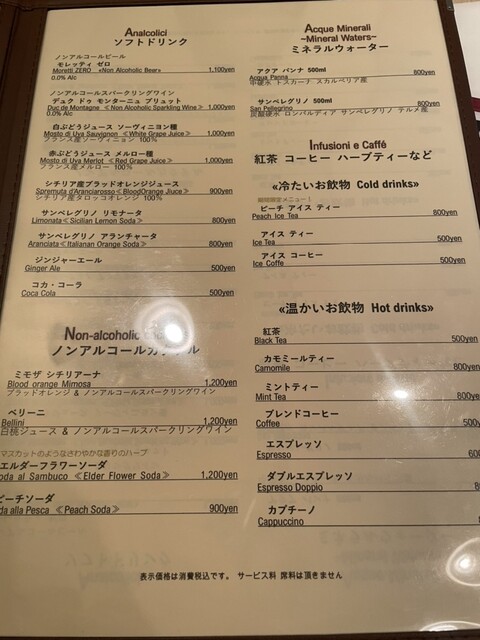 Analcolici
ソフトドリンク
ノンアルコールビール
モレッティ ゼロ
Moretti ZERO «Non Alcoholic Beer» 1,100yen
0.0% Alc
ノンアルコールスパークリングワイン
デュク ドゥ モンターニュ ブリュット
Duc de Montagne ≪Non Alcoholic Sparkling Wine≫ 1,000yen
0.0% Alc
白ぶどうジュース ソーヴィニヨン種
Mosto di Uva Sauvignon ≪White Grape Juice≫ 1,000yen
フランス産ソーヴィニヨン 100%
赤ぶどうジュース メルロー種
Mosto di Uva Merlot ≪Red Grape Juice≫ 1,000yen
フランス産メルロー 100%
シチリア産ブラッドオレンジジュース
Spremuta d'Aranciarosso≪BloodOrange Juce≫ 900yen
シチリア産タロッコオレンジ 100%
サンペレグリノ リモナータ
Limonata≪Sicilian Lemon Soda≫ 800yen
サンペレグリノ アランチャータ
Aranciata≪Italianan Orange Soda≫ 800yen
ジンジャーエール
Ginger Ale 500yen
コカ・コーラ
Coca Cola 500yen
Non-alcoholic
ノンアルコールカ
ミモザ シチリアーナ
Blood orange Mimosa 1,200yen
ブラッドオレンジ & ノンアルコールスパークリングワイン
ベリーニ
Bellini 1,200yen
白桃ジュース & ノンアルコールスパークリングワイン
マスカットのようなさわやかな香りのハーブ
エルダーフラワーソーダ
oda al Sambuco ≪Elder Flower Soda≫ 1,200yen
ピーチソーダ
da alla Pesca ≪Peach Soda≫ 900yen
Acque Minerali
~Mineral Waters~
ミネラルウォーター
アクア パンナ 500ml
Acqua Panna 800yen
中硬水 トスカーナ スカルペリア産
サンペレグリノ 500ml
San Pellegrino 800yen
炭酸硬水 ロンバルディア サンペレグリノ テルメ産
Infusioni e Caffé
紅茶 コーヒー ハーブティーなど
«冷たいお飲物 Cold drinks»
期間限定メニュー!
ピーチ アイス ティー
Peach Ice Tea 800yen
アイス ティー
Ice Tea 500yen
アイス コーヒー
Ice Coffe 500yen
«温かいお飲物 Hot drinks»
紅茶
Black Tea 500yen
カモミールティー
Camomile 800yen
ミントティー
Mint Tea 800yen
ブレンドコーヒー
Coffee 500yen
エスプレッソ
Espresso 600
ダブルエスプレッソ
Espresso Doppio 8
カプチーノ
Cappuccino
表示価格は消費税込です。 サービス料 席料は頂きません